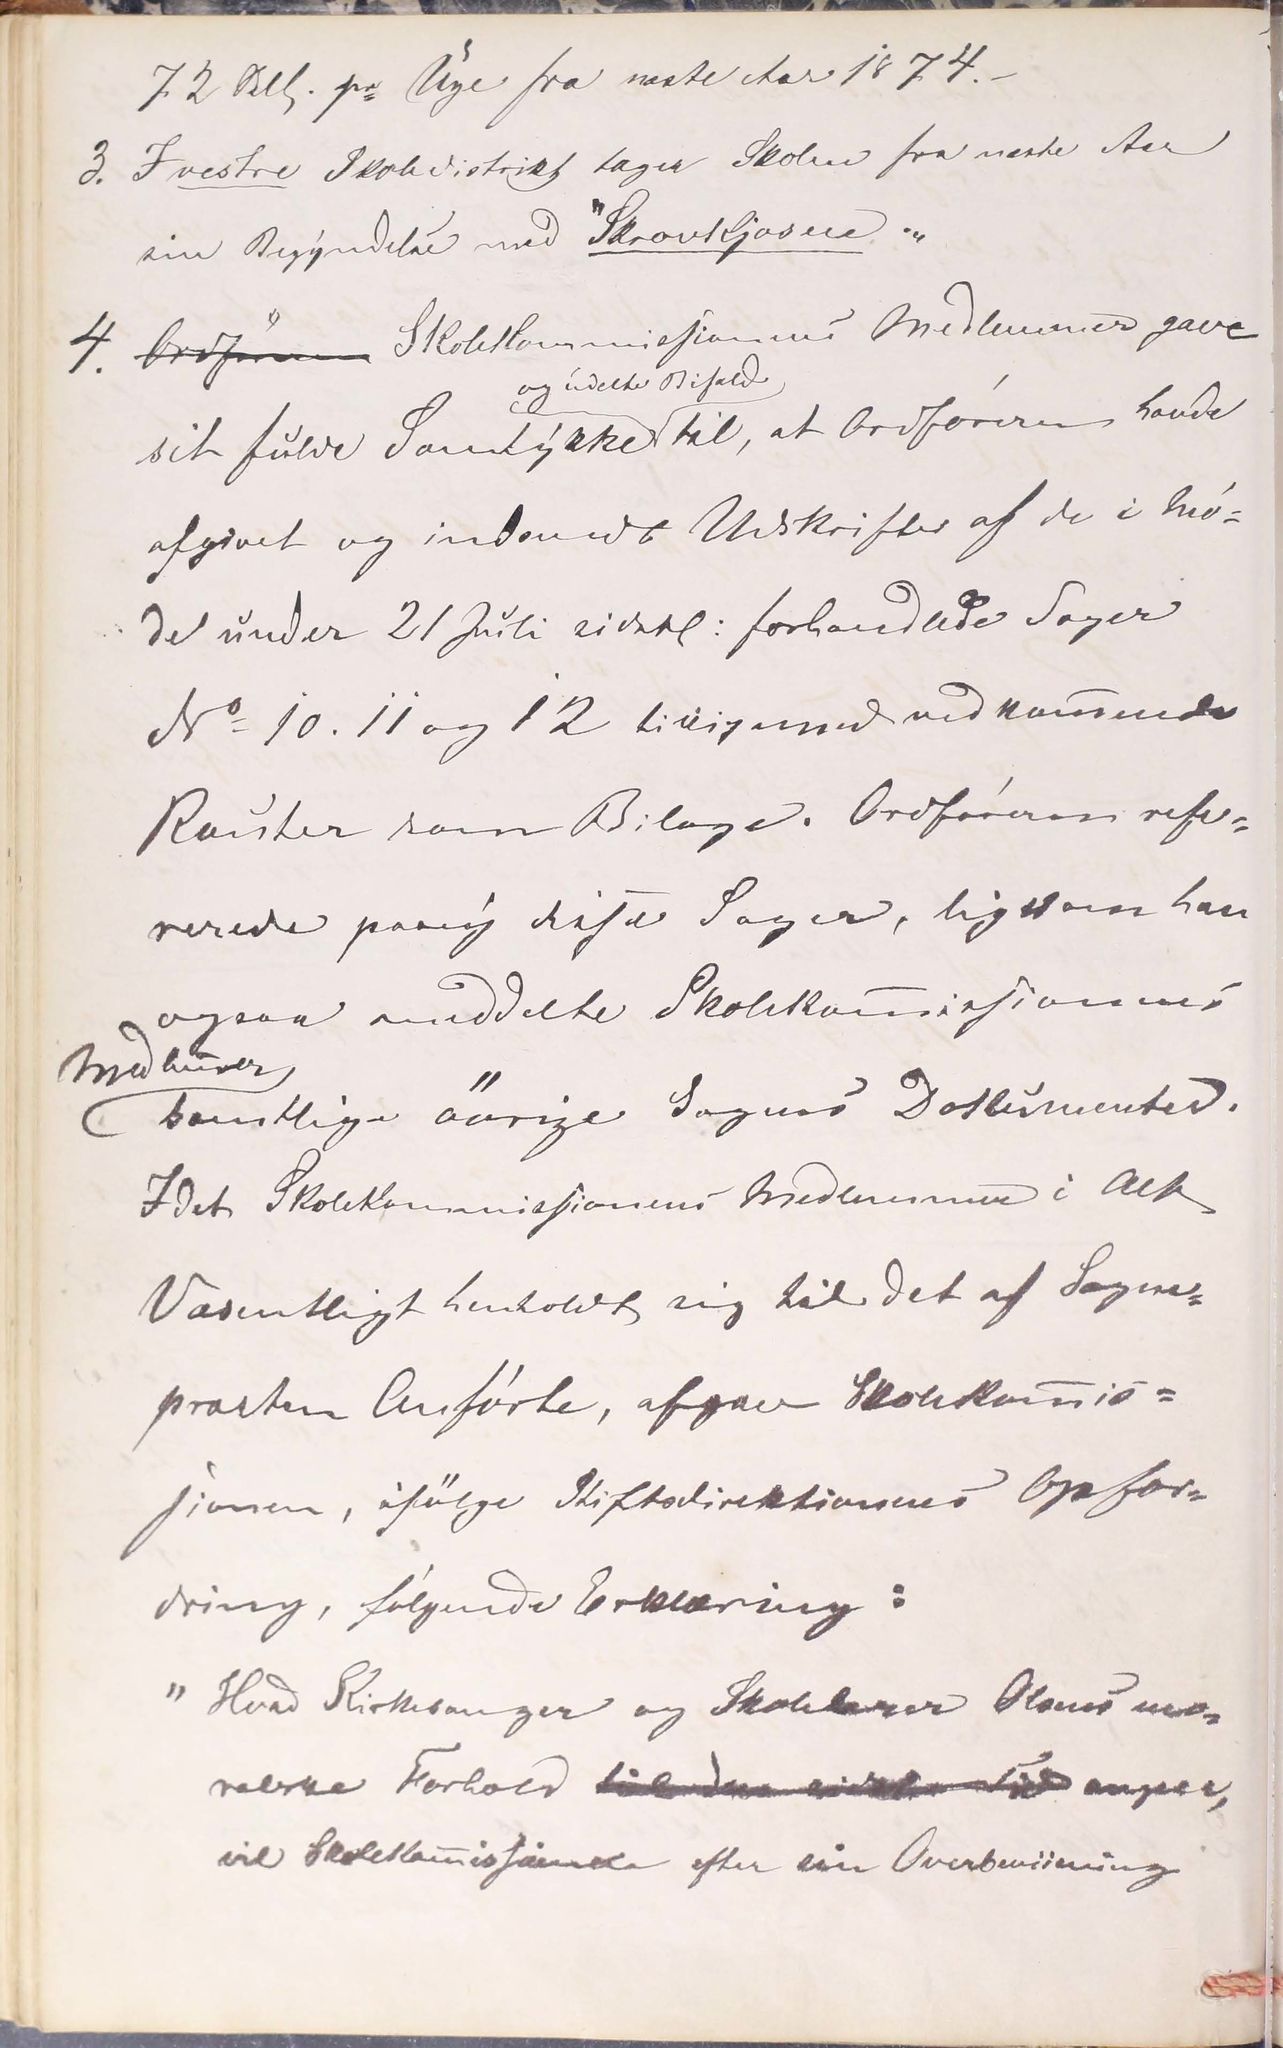 72 Skll. pr Uge fra næste Aar 1874.-
3. I vestre Skoledistrikt tager Skolen fra næste Aar
sin Begyndelse med "Skrovkjosen"
4. Ordføreren Skolekommissionens Medlemmer gave
og udelte Bifald
sit fulde Samtykke til, at Ordføreren havde
afgivet og indsendt Udskrifter af de i Mö=
de under 21 Juli sidstl: forhandlede Sager
No 10. 11 og 12 tilligemed vedkommende
Råuster som Bilage. Ordføreren refe=
rerede paany disse Sager, ligesom han
ogsaa meddelte Skolekommissionens
Medlemmer
samtlige övrige Sagens Dokumenter.
Idet Skolekommissionens Medlemmer i Alt
Væsentligt henholdt sig til det af Sogne=
præsten Anförte, afgav Skolekommis=
sionen, ifölge Stiftsdirektionens Opfor=
dring, følgende Erklæring:
" Hvad Kirkesanger og Skolelærer Olsens mo=
ralske Forhold til den sidste Tid angaar,
vil Skolekommissionen efter sin Overbeviisning